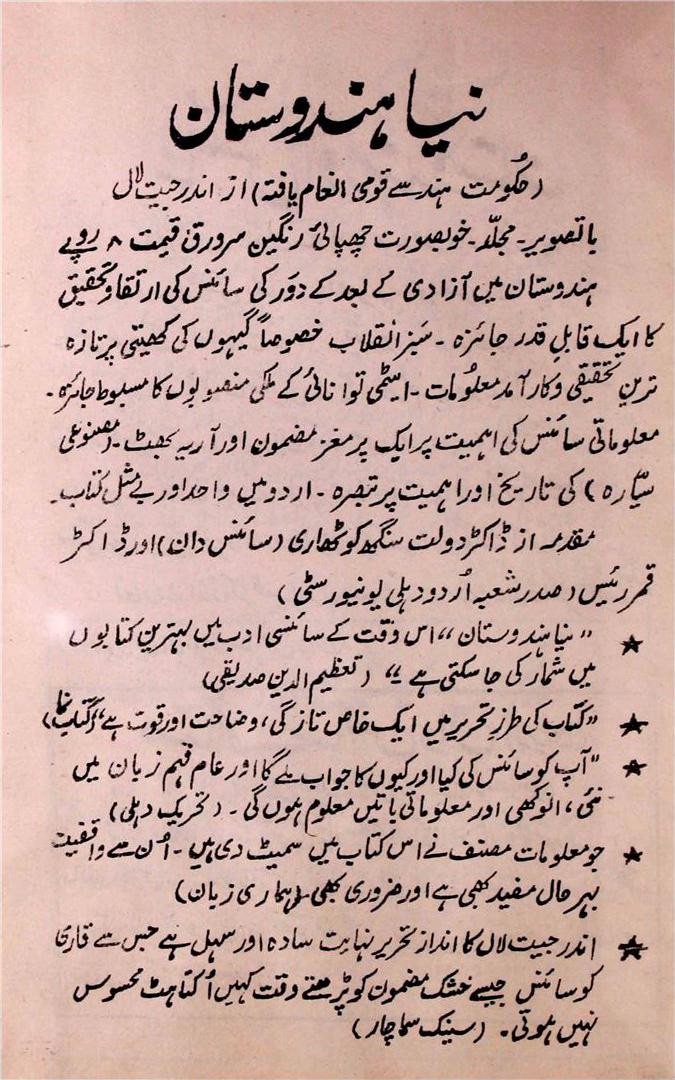 نیا ہندوستان
(حکومت ہند سے قومی انعام یافتہ) از اندر جیت لال
باتصویر۔ مجلد۔ خوبصورت چھپائی رنگین سرورق قیمت ۸ روپے
ہندوستان میں آزادی کے بعد کے دور کی سائنس کی ارتقا و تحقیق
کا ایک قابلِ قدر جائزہ ۔ سبز انقلاب خصوصاً گیہوں کی کھیتی پر تازہ
ترین تحقیقی و کار آمد معلومات ۔ ایٹمی توانائی کے ملکی منصوبوں کا مبسوط جائزہ ۔
معلوماتی سائنس کی اہمیت پر ایک پر مغز مضمون اور آریہ بھٹ ۔ (مصنوعی
سیّارہ) کی تاریخ اور اہمیت پر تبصرہ ۔ اردو میں واحد اور بے مثل کتاب ۔
مقدمہ از ڈاکٹر دولت سنگھ کوٹھاری (سائنس دان) اور ڈاکٹر
قمر رئیس (صدر شعبہ اُردو دہلی یونیورسٹی)
★ "نیا ہندوستان" اس وقت کے سائنسی ادب میں بہترین کتابوں
میں شمار کی جا سکتی ہے" (تعظیم الدین صدیقی)
★ "کتاب کی طرز تحریر میں ایک خاص تازگی، وضاحت اور قوت ہے" (کتاب نما)
★ "آپ کو سائنس کی کیا اور کیوں کا جواب ملے گا اور عام فہم زبان میں
نئی، انوکھی اور معلوماتی باتیں معلوم ہوں گی ۔ (تحریک دہلی)
★ جو معلومات مصنف نے اس کتاب میں سمیٹ دی ہیں ۔ اُن سے واقفیت
بہر حال مفید بھی ہے اور ضروری بھی (ہماری زبان)
★ اندر جیت لال کا انداز تحریر نہایت سادہ اور سہل ہے جس سے قاری
کو سائنس جیسے خشک مضمون کو پڑھتے وقت کہیں اُکتاہٹ محسوس
نہیں ہوتی ۔ (سینک سماچار)